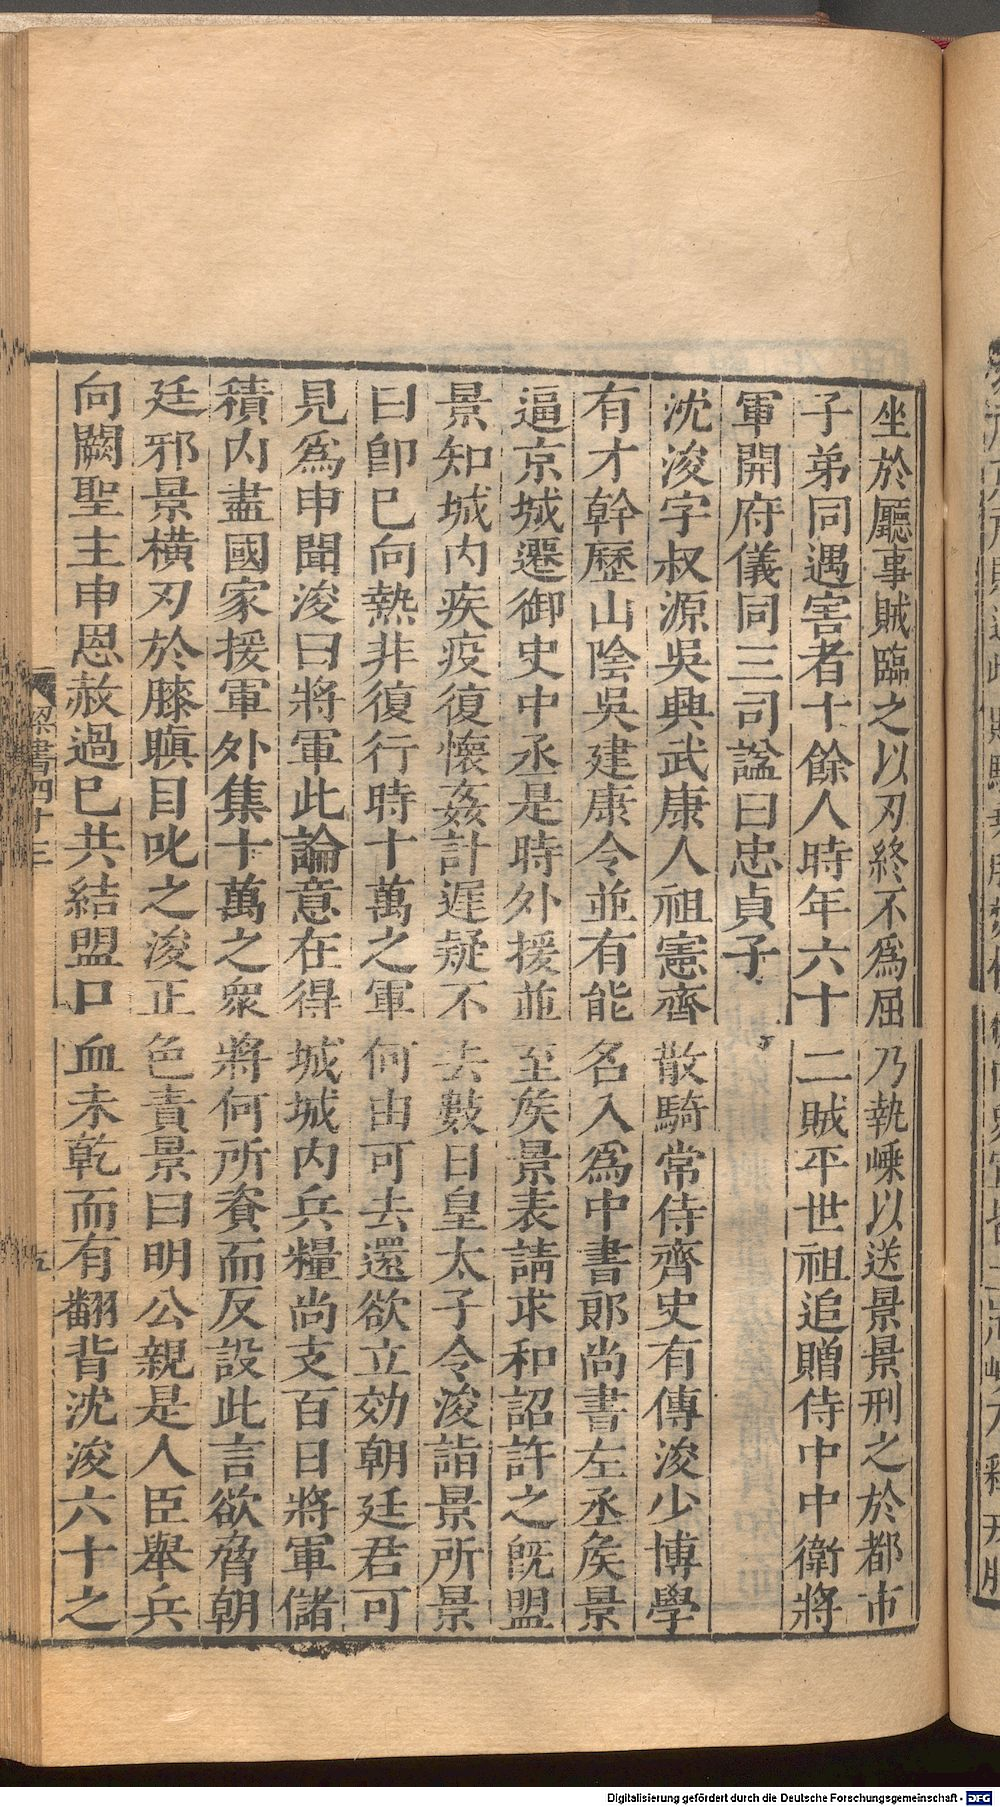 坐於廳事賊臨之以刃終不爲屈乃執嵊以送景景刑之於都市
子弟同遇害者十餘人時年六十二賊平世祖追贈侍中中衛將
軍開府儀同三司諡曰忠貞子
沈浚字叔源吳興武康人祖憲齊散騎常侍齊史有傳浚少博學
有才幹歷山陰吳建康令並有能名入爲中書郎尚書左丞矦景
逼京城遷御史中丞是時外援並至矦景表請求和詔許之旣盟
景知城内疾疫復懷姦計遲疑不去數日皇太子令浚詣景所景
曰卽巳向熱非復行時十萬之軍何由可去還欲立効朝廷君可
見爲申聞浚曰將軍此論意在得城城内兵糧尚支百日將軍儲
積内盡國家援軍外集十萬之衆將何所資而反設此言欲脅朝
廷邪景橫刃於膝瞋目叱之浚正色責景曰明公親是人臣舉兵
向闕聖主申恩赦過巳共結盟口血未乾而有翻背沈浚六十之
梁書四十三
五
Digitalisierung gefördert durch die Deutsche Forschungsgemeinschaft - DFG